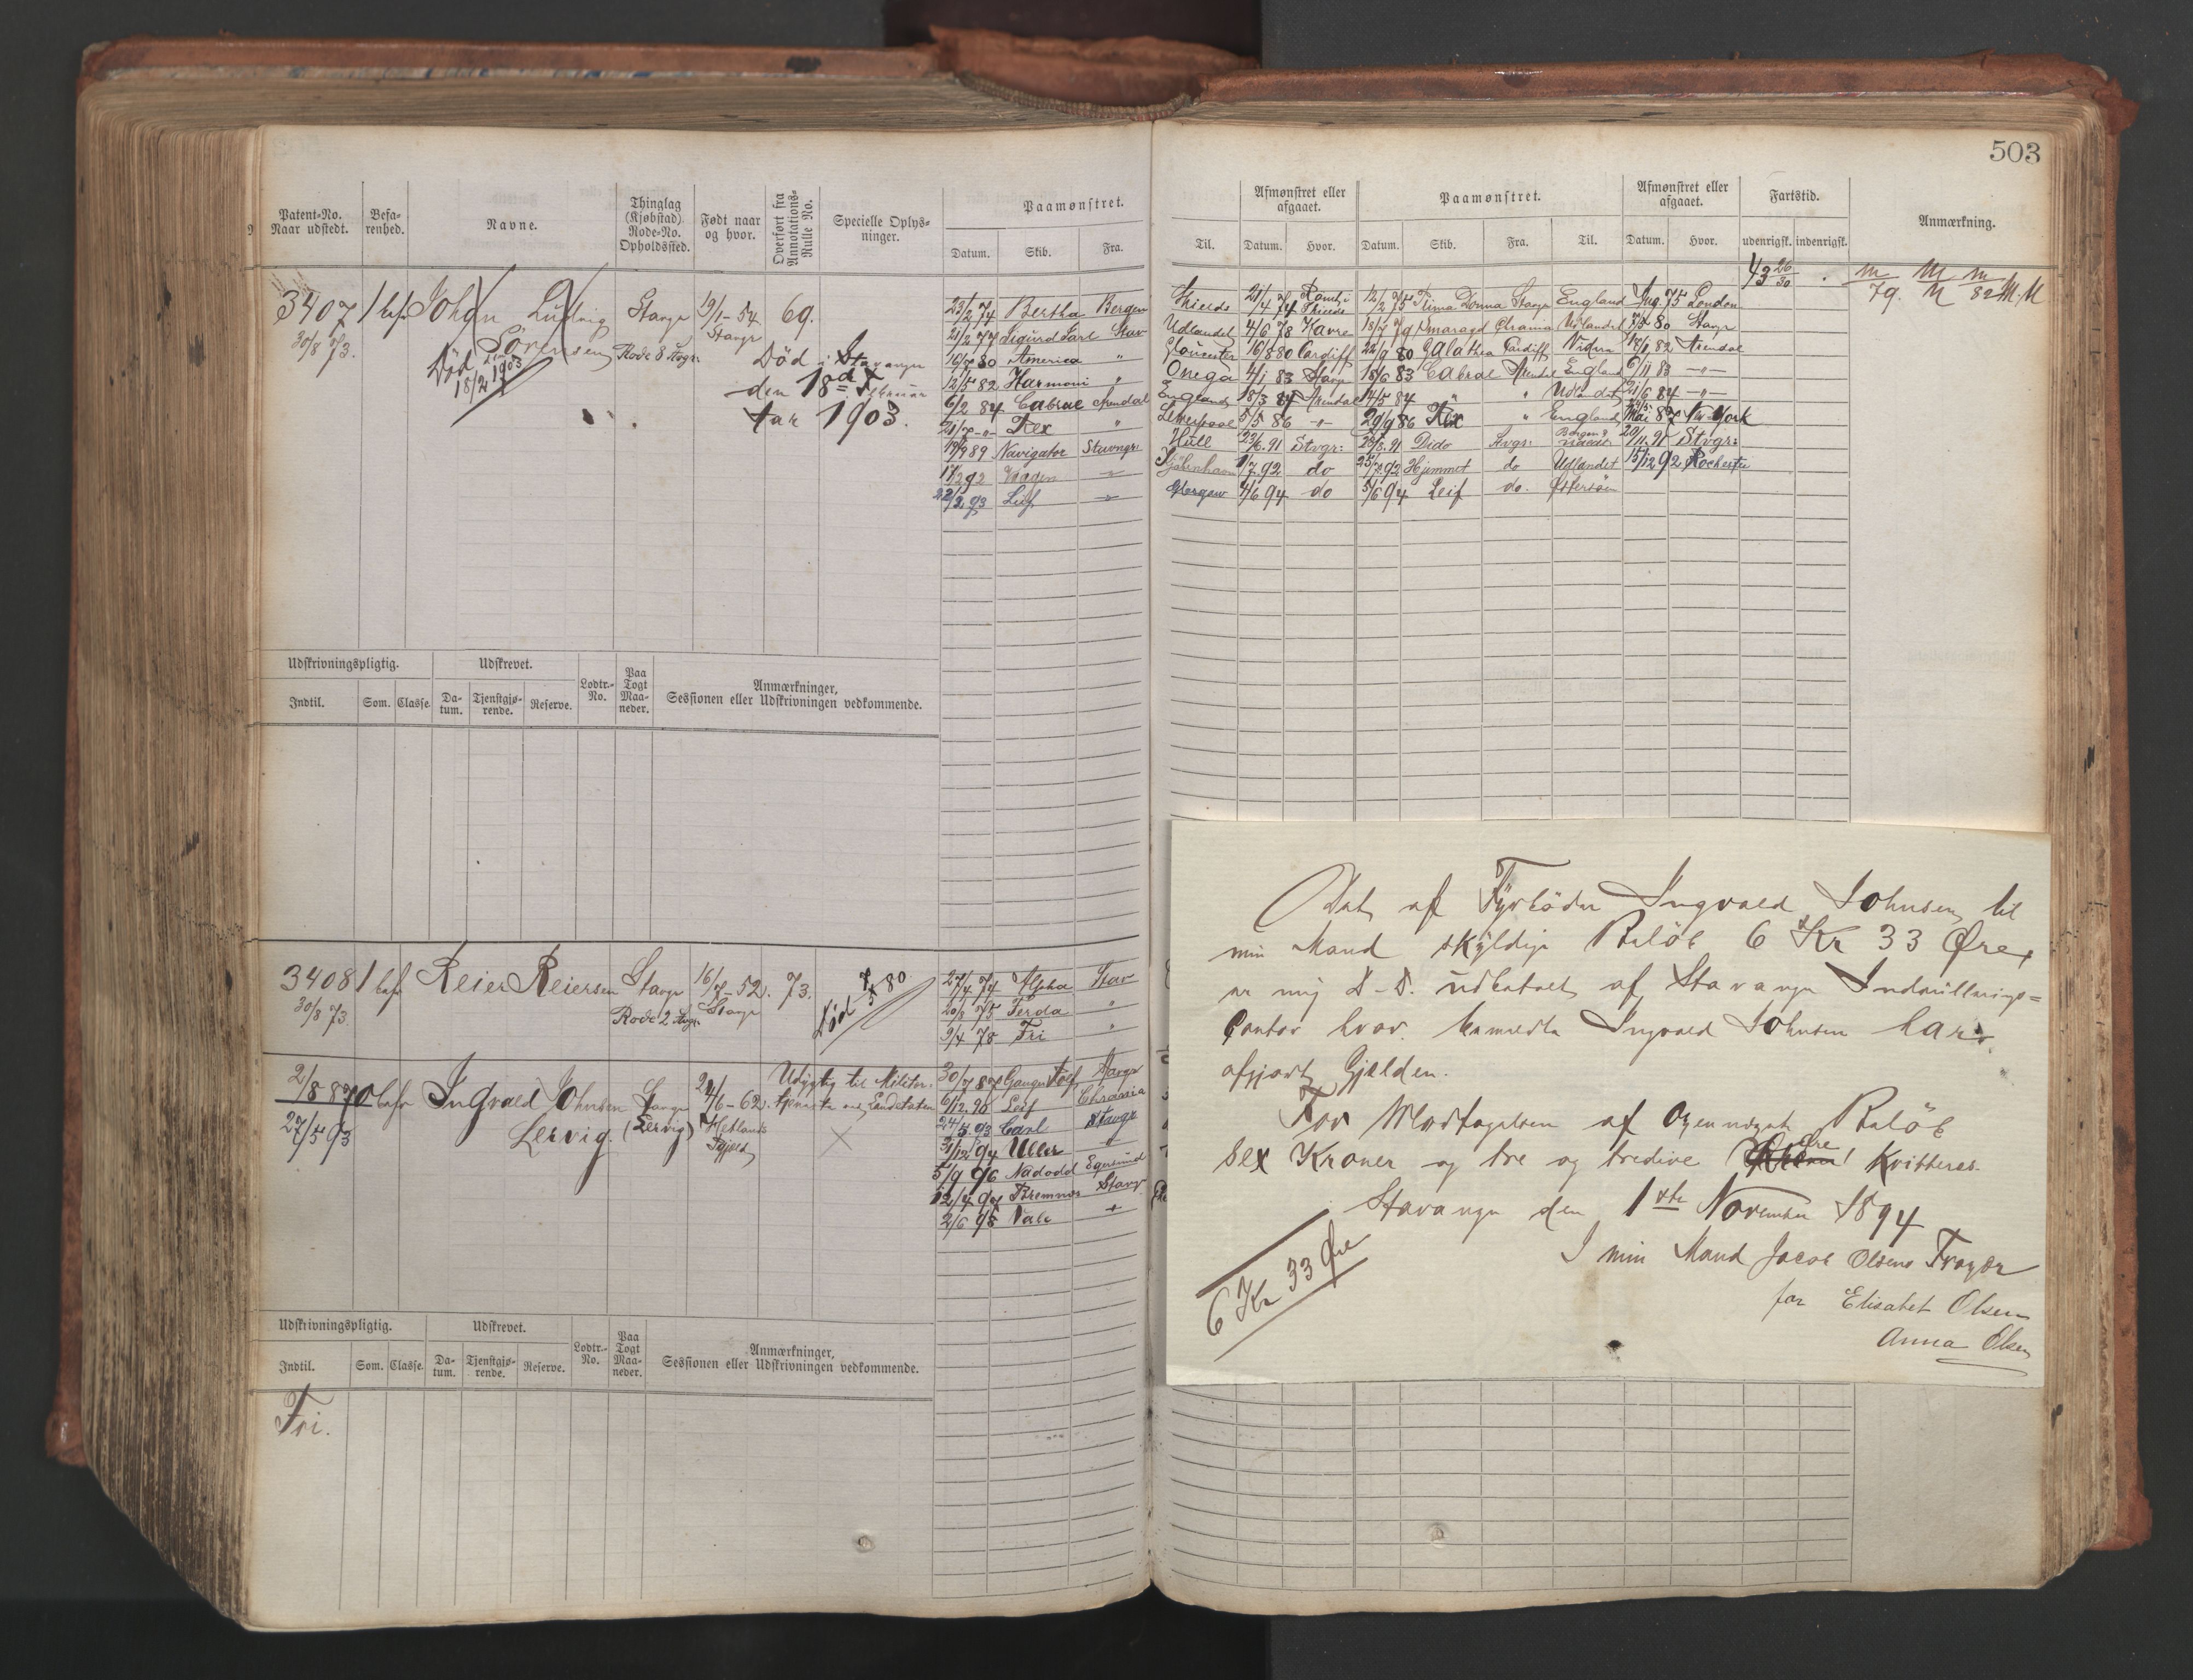 503
Patent-No. Naar udstedt.
Befarenhed.
Navne.
Thinglag (Kjøbstad) Rode-No. Opholdssted.
Født naar og hvor.
Overført fra Annotations-Rulle No.
Specielle Oplysninger.
Paamønstret.
Datum. Skib. Fra.
3407 1 bf. Johan Ludvig Stavgr 19/1-54 69.
30/8 73. Sørensen Rode 8 Stvgr: Stavgr
Død 18/2 1903
Død i Stavanger
den 18de Februar
1903.
23/2 74 Bertha Bergen
21/2 77 Sigurd Jarl Stav
America "
12/5 82 Harmoni "
6/2 84 Cabral Arendal
Rex "
Navigator Stavngr:
92
22/3 93 Leif
Udskrivningspligtig. Udskrevet. Lodtr.-No. Paa Togt Maaneder. Anmærkninger, Sessionen eller Udskrivningen vedkommende.
Indtil. Som. Classe. Datum. Tjenstgjørende. Reserve.
3408 1 baf. Reier Reiersen Stavgr 16/7-52. 73. Død 7/5 80
30/8 73. Rode 2 Stvgr. Stavgr
27/4 74 Alpha Stav
75 Ferda "
9/4 78 Fri "
2/8 87 Ingvald Johnsen Stavgr 24/6-62. Udygtig til Militær-
27/5 93 Lervig. (Lervig) Hetlands
30/7 87 Ganger Rolf Stavgr
6/12 90 Leif Chrania
24/5 93 Carl Stavgr
31/12 94 Uller "
5/9 96 Nadodd Egersund
Bremnæs Stavgr
Vale "
Udskrivningspligtig. Udskrevet. Lodtr.-No. Paa Togt Maaneder. Anmærkninger, Sessionen eller Udskrivningen vedkommende.
Indtil. Som. Classe. Datum. Tjenstgjørende. Reserve.
Fri.
Afmønstret eller afgaaet. Paamønstret. Afmønstret eller afgaaet. Fartstid. Anmærkning.
Til. Datum. Hvor. Datum. Skib. Fra. Til. Datum. Hvor. udenrigsk. indenrigsk.
43 26/30
79. 82
Shields 12/2 75 Prima Donna Stavgr England Aug. 75 London
Udlandet 4/6 78 Havre 18/7 79 Smaragd Chrania Udlandet 80 Stavgr
Gloucester 16/8 80 Cardiff 22/9 80 Galathea Cardiff 82 Arendal
Onega 4/1 83 Stavgr 18/6 83 Cabral Arendal England 6/11 83 -"-
England 18/3 84 Arendal 14/5 84 " " Udlandet 21/6 84 -"-
Liverpool 5/5 86 -"- 29/9 86 Rex " England Mai 87 New-York
Hull 23/6.91 Stvgr: Dido Stvgr: 20/11.91 Stvgr:
Kjøbenhavn 92 do Hummel do Udlandet 15/12 92 Rochester
Glasgow 4/6 94 do 5/6 94 Leif do. Østersøen
Det af Fyrbøder Ingvald Johnsen til
min Mand skyldige Beløb 6 Kr 33 Øre,
er mig D.D. udbetalt af Stavanger Indrullerings=
Contor hvor bemeldte Ingvald Johnsen har
afgjort Gjælden.
For Modtagelsen af Ovennævnt Beløb
Sex Kroner og tre og tredive Øre Kvitteres.
Stavanger den 1ste November 1894
6 Kr 33 Øre
I min Mand Jacob Olsens Fravær
for Elisabet Olsen
Anna Olsen